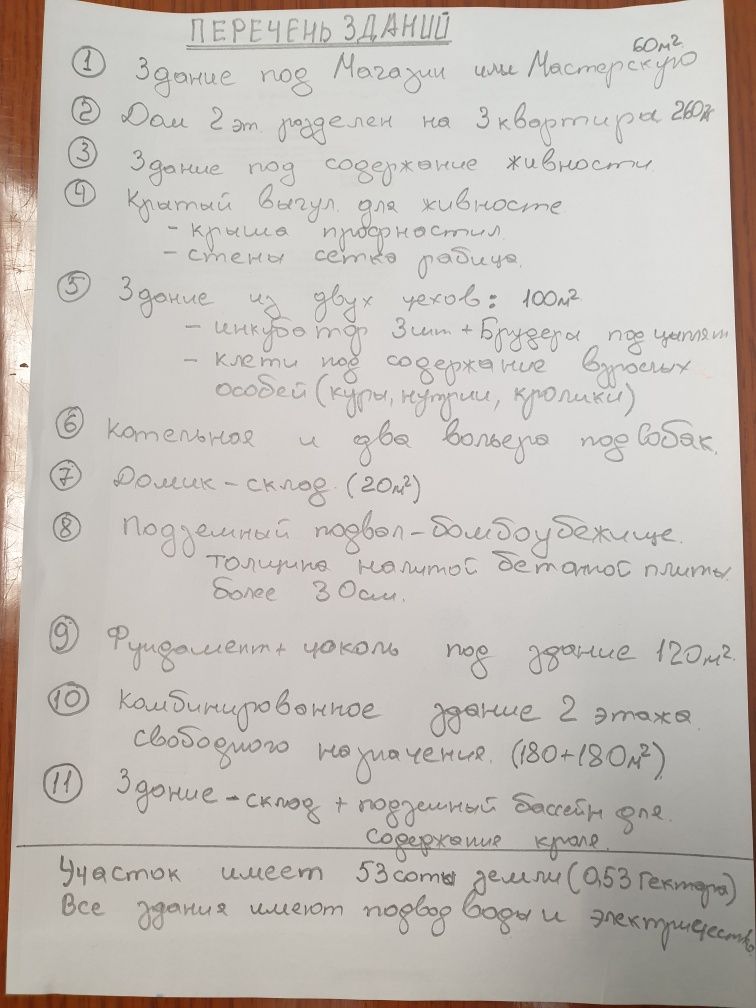 ПЕРЕЧЕНЬ ЗДАНИЙ
① Здание под Магазин или Мастерскую 60м²
② Дом 2 эт. разделен на 3 квартиры 260м²
③ Здание под содержание живности
④ Крытый выгул для живносте
- крыша профностил.
- стены сетка рабица.
⑤ Здание из двух цехов: 100м²
- инкубатор 3шт + Брудера под цыплят
- клети под содержание взрослых
особей (куры, нутрии, кролики)
⑥ Котельная и два вольера под собак.
⑦ Домик - склад. (20м²)
⑧ Подземный подвал - бомбоубежище.
толщина налитой бетонной плиты
более 30см.
⑨ Фундамент + цоколь под здание 120м².
⑩ Комбинированное здание 2 этажа.
свободного назначения. (180+180м²)
⑪ Здание - склад + подземный бассейн для.
содержания краля.
Участок имеет 53 соты земли (0,53 Гектара)
Все здания имеют подвод воды и электричество.